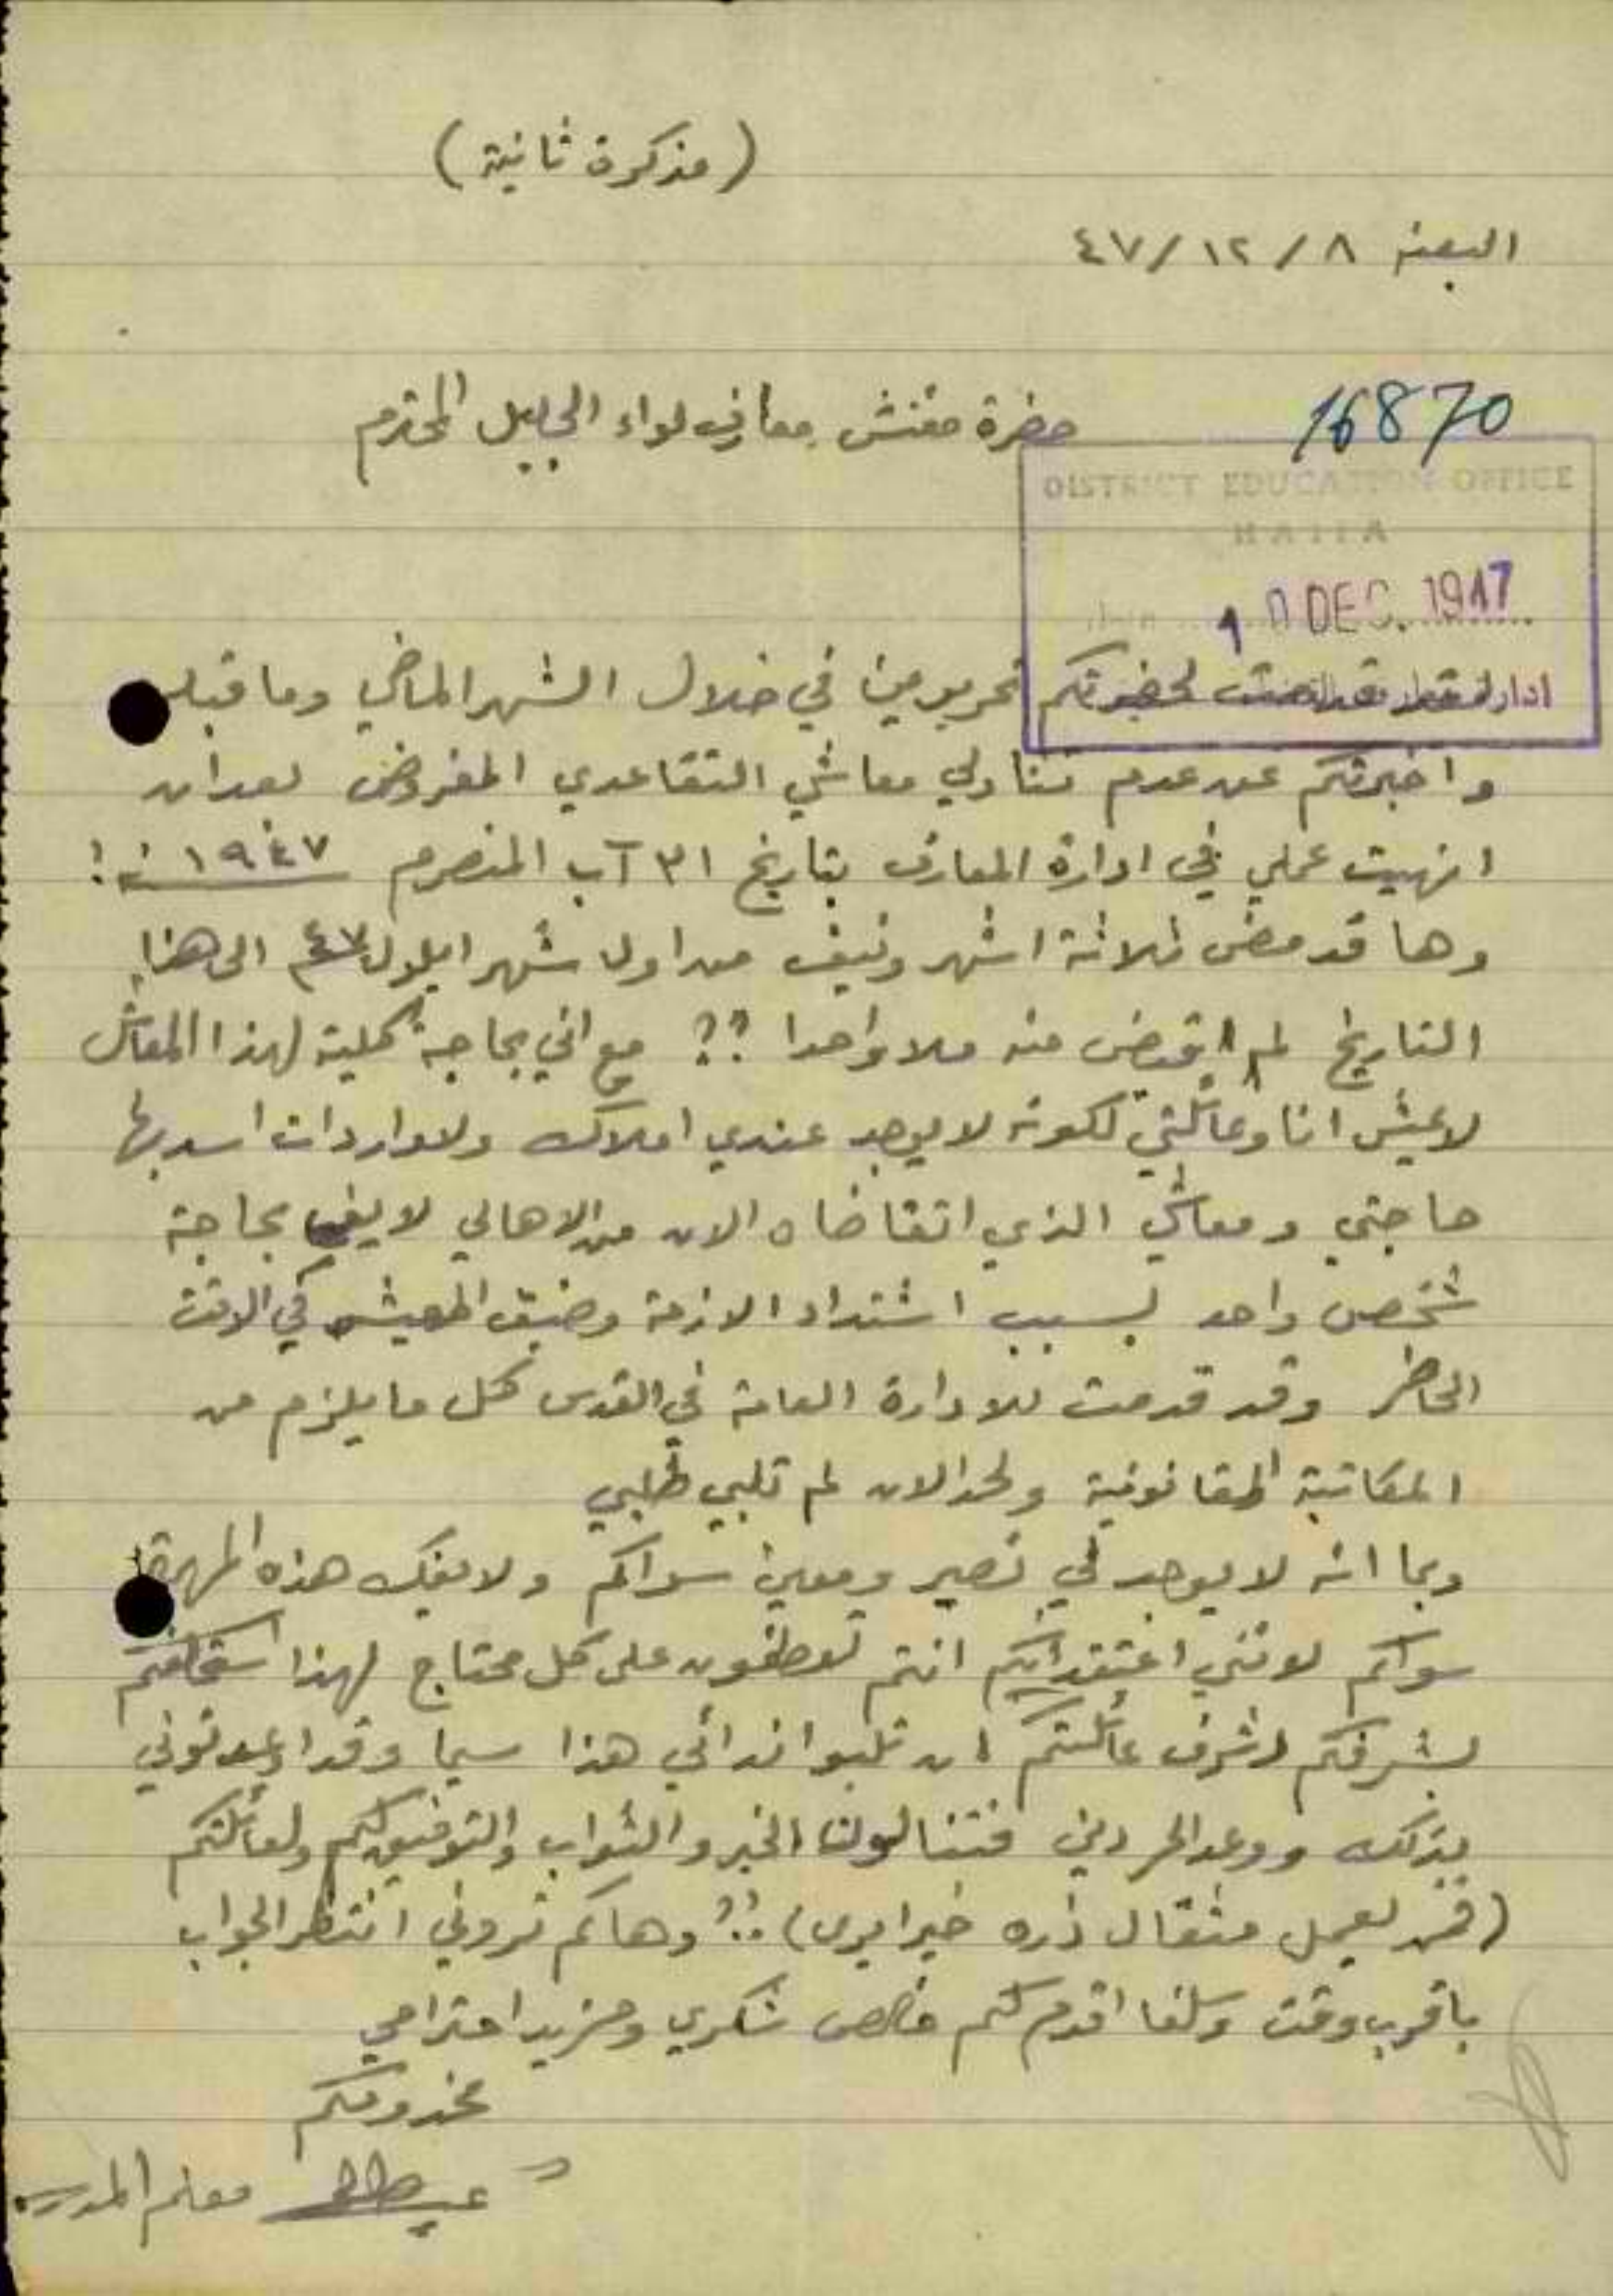 (مذكرة ثانية)
البعنه ٨ / ١٢ / ٤٧
16870
حضرة مفتش معارف لواء الجليل المحترم
DISTRICT EDUCATION OFFICE
HAIFA
10 DEC. 1947
لحضرتكم تحريرين في خلال الشهر الماضي وما قبله
واخبرتكم عن عدم تناولي معاشي التقاعدي المفروض بعد ان
انهيت عملي في ادارة المعارف بتاريخ ٣١ آب المنصرم سنة ١٩٤٧!
وها قد مضى ثلاثة اشهر ونيف من اول شهر ايلول ٤٧ الى هذا
التاريخ لم اقبض منه ملا واحدا ؟؟ مع اني بحاجة كلية لهذا المعاش
لاعيش انا وعائلتي لكونه لا يوجد عندي املاك ولا واردات اسد بها
حاجتي ومعاشي الذي اتقاضاه الان من الاهالي لا يفي بحاجة
شخص واحد بسبب اشتداد الازمة وضيق المعيشه في الوقت
الحاضر وقد قدمت للادارة العامة في القدس كل ما يلزم من
المكاتبة القانونية ولحد الان لم تلبي طلبي
وبما انه لا يوجد لي نصير ومعين سواكم ولا يفك هذه
سواكم لانني اعتقد انكم انتم تعطفون على كل محتاج لهذا استحلفكم
بشرفكم وشرف عائلتكم ان تلبوا ندائي هذا سيما وقد اوعدتوني
بذلك ووعد الحر دين فتنالون الخير والثواب والتوفيق لكم ولعائلتكم
(فمن يعمل مثقال ذره خيرا يرى) ؟! وها كم تروني انتظر الجواب
باقرب وقت وسلفا اقدم لكم خالص شكري ومزيد احترامي
مخدومكم
معلم المدرسه